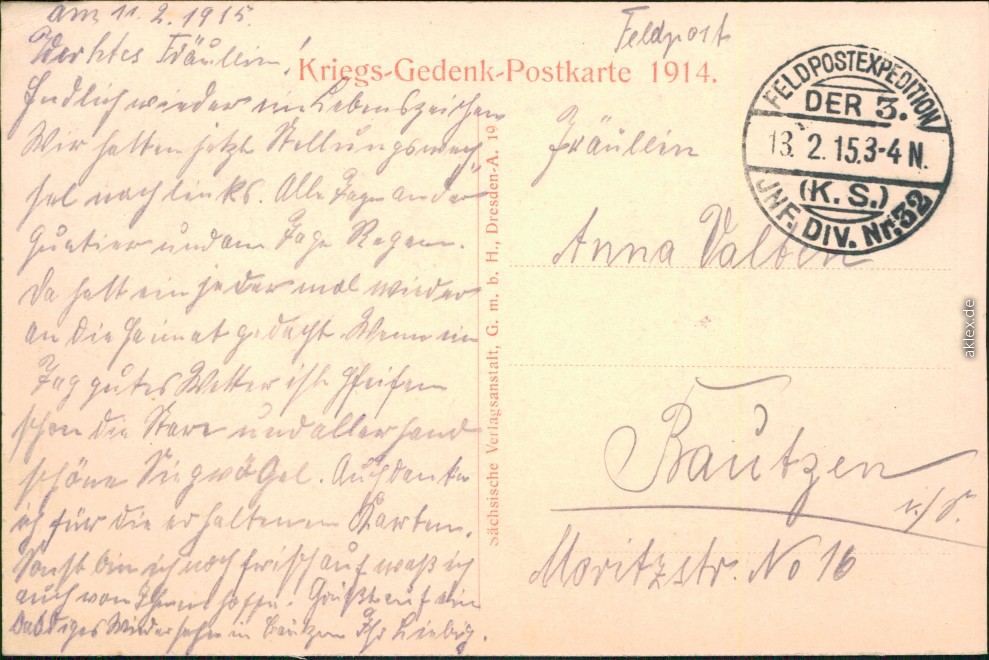 am 11.2.1915.
Wertes Fräulein!
Endlich wieder ein Lebenszeichen
Wir hatten jetzt Stellungswech
sel nach links. Alle Tage ander
Quatier und am Tage Regen.
Da hatt ein jeder mal wieder
an die Heimat gedacht. Wenn ein
Tag gutes Wetter ist Pfeifen
schon die Stare und allerhand
schöne Singvögel. Auch danke
ich für die erhaltenen Karten.
Sonst bin ich noch frisch auf was ich
auch von Ihnen hoffe. Grüßt auf ein
baldiges Wiedersehen in Bautzen Ihr Liebig.
Feldpost
Kriegs-Gedenk-Postkarte 1914.
FELDPOSTEXPEDITION
DER 3.
13. 2. 15. 3-4 N.
(K. S.)
JNF. DIV. Nr. 32
Fräulein
Anna Valten
Bautzen
i/S.
Moritzstr. No 16
Sächsische Verlagsanstalt, G. m. b. H., Dresden-A. 19
aklex.de